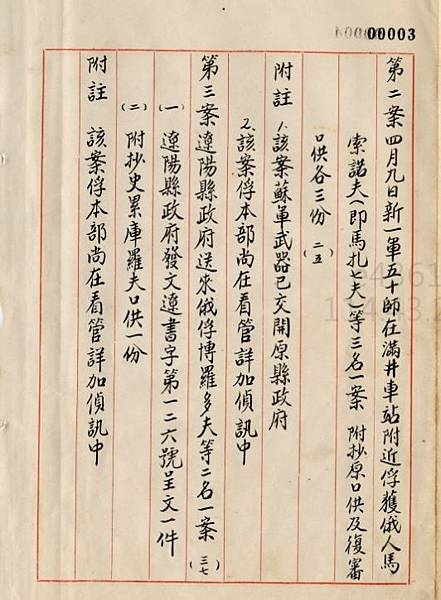 00003
第二案 四月九日新一軍五十師在滿井車站附近俘獲俄人馬
索諾夫(即馬扎七夫)等三名一案 附抄原口供及復審
口供各三份(二五)
附註 1.該案蘇軍武器已交開原縣政府
2.該案俘本部尚在看管詳加偵訊中
第三案 遼陽縣政府送來俄俘博羅多夫等二名一案(三七)
(一) 遼陽縣政府發文遼書字第一二六號呈文一件
(二) 附抄史累庫羅夫口供一份
附註 該案俘本部尚在看管詳加偵訊中